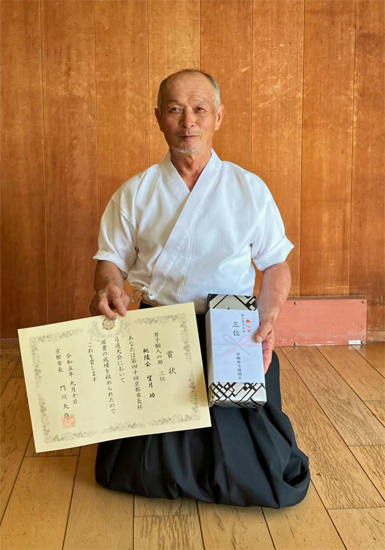 賞状
男子個人の部 三位
桃陵会 望月 功
あなたは第四十回京都市長杯
弓道大会において
頭書の成績を収められたので
これを賞します
令和五年九月十日
京都市長 門川大作
三位